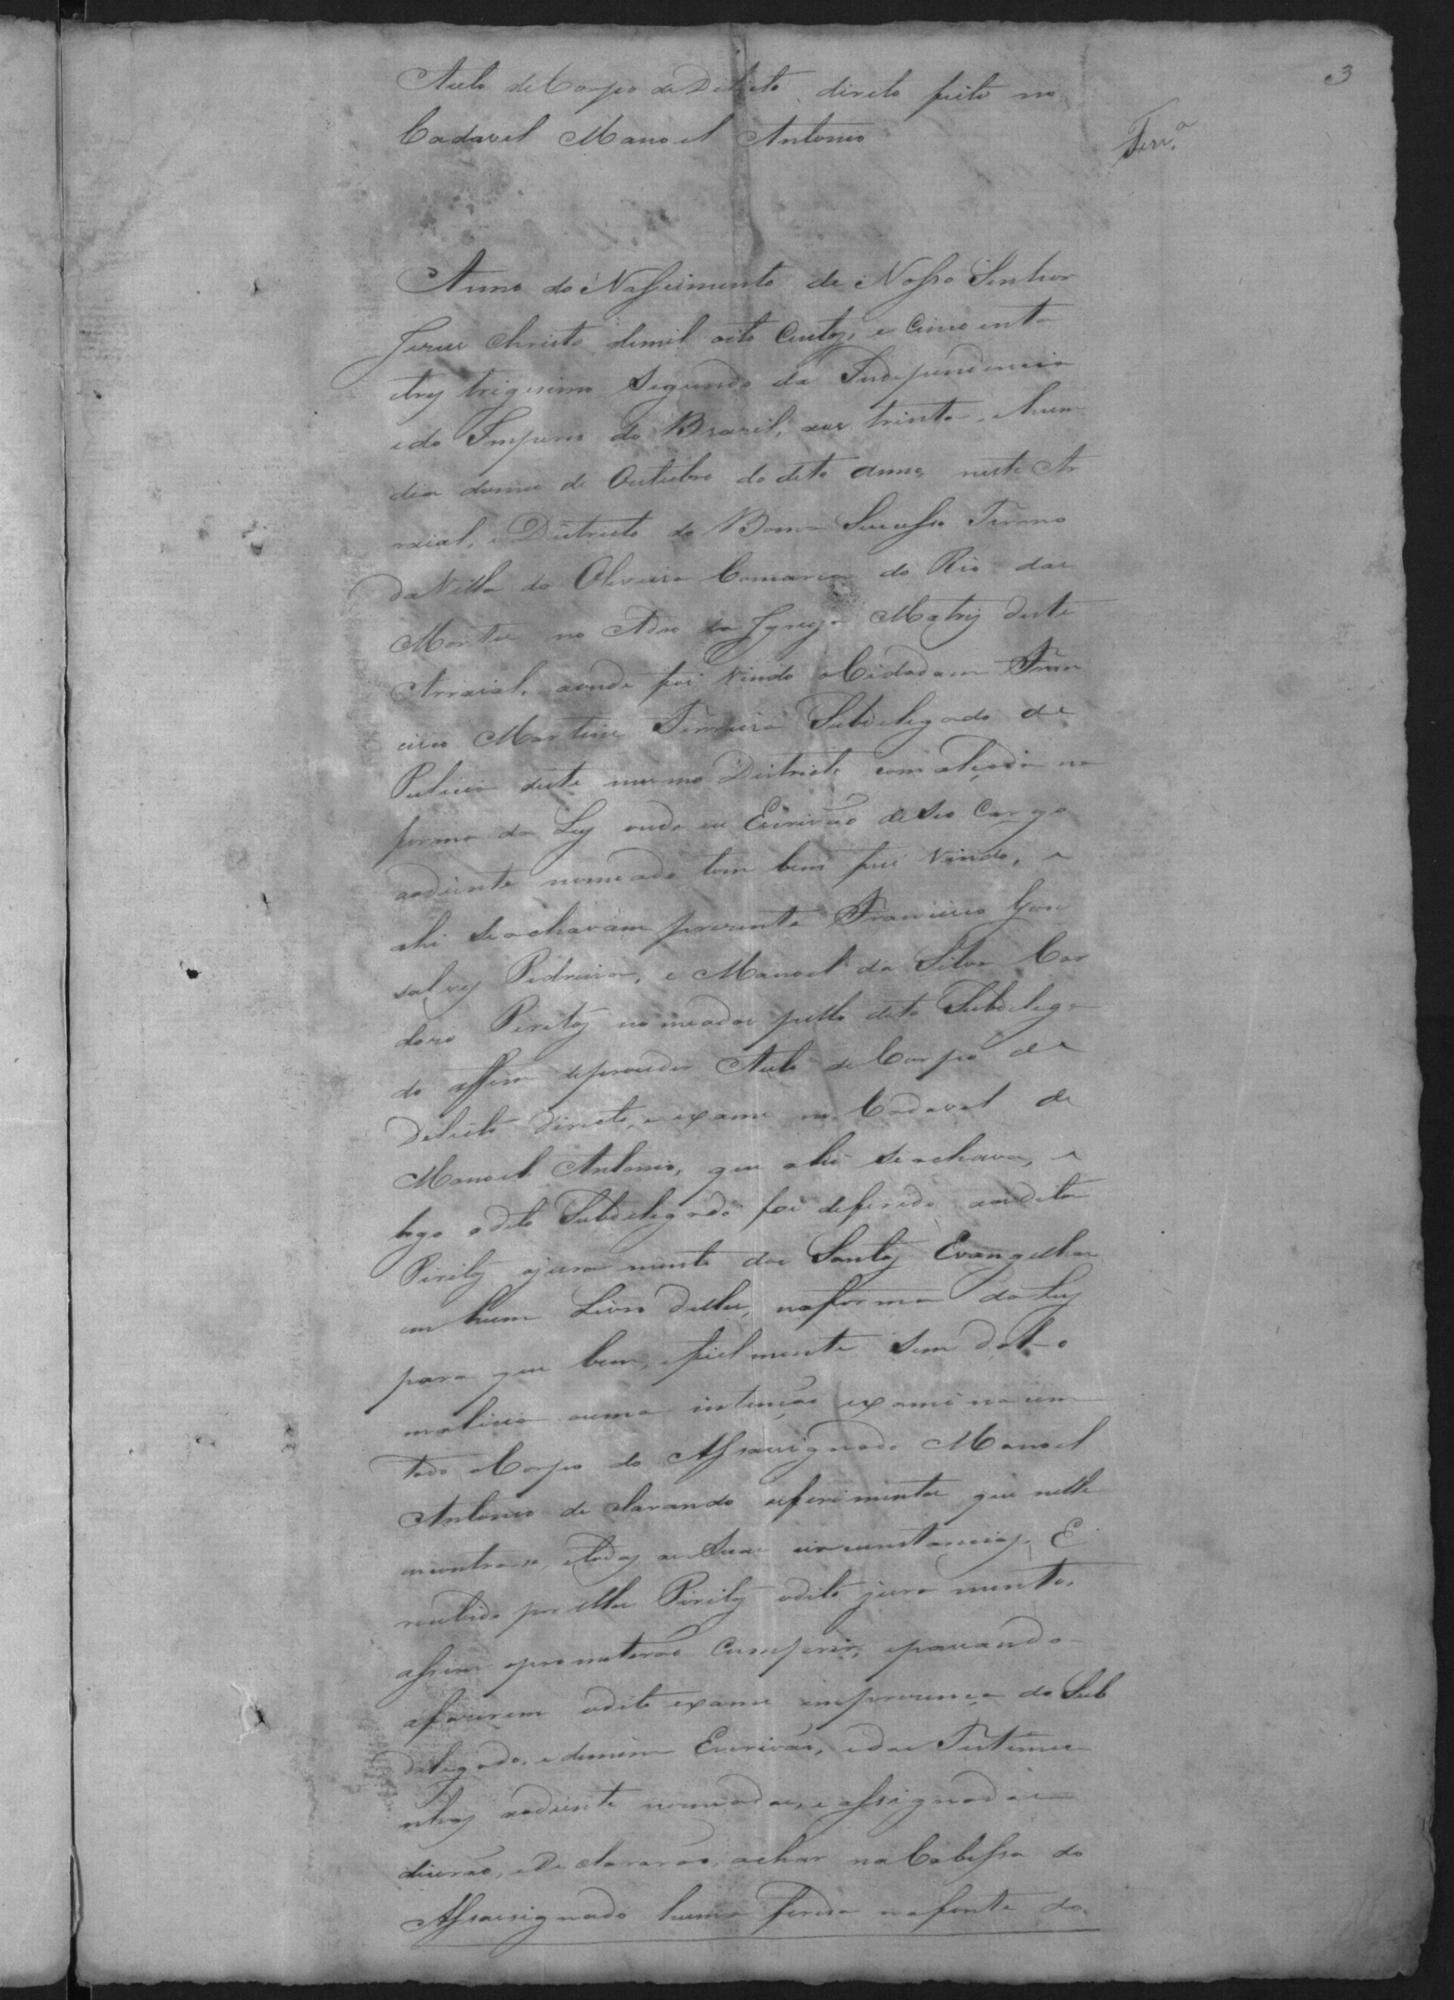 3
Auto de Corpo de Delicto directo feito no
Cadavel Manoel Antonio
Ferr.ª
Anno do Nassimento de Nosso Senhor
Jezus Christo demil oito Centos, e Cincoenta
etres trigesimo Segundo da Independencia
edo Imperio do Brazil, aos trinta, ehum
dia domes de Outubro do dito anno, neste Ar
raial, e Districto do Bom Sucesso Termo
da Villa de Oliveira Comarca do Rio das
Mortes no Adro da Igreja Matriz deste
Arraial, aonde foi Vindo o Cidadam Fran
cisco Martins Ferreira Subdelegado de
Policia deste mesmo Districto com alçada na
forma da Ley onde eu Escrivão deseo Cargo
aodiente nomeado tom bem fui Vindo, e
ahi Seachavam prezente Francisco Gon
salves Pedreira, e Manoel da Silva Cor
doro Piritos nomeados pello dito Subdelega
do affim deproceder Auto de Corpo de
Delicto Directo, e exame no Cadavel de
Manoel Antonio, que ahi Seachava, e
logo odito Subdelegado foi deferido aosditos
Piritos ojura mento dos Santos Evangelhos
em hum Livro delles, naforma daLey
para que bem, efielmente Sem dolo
malicia ouma intenção examinacem
todo oCorpo do Assacignado Manoel
Antonio de clarando osferimentos que nelle
encontrace, etodas as Suas circunstancias, E
recebido por elles Piritos odito jura mento,
assim oprometerão Cumprir, epacando
afazerem odito exame emprezença do Sub
delegado, e demim Escrivão, edas Testemu
nhas aodiente nomeadas, e assignadas
dicerão, eDe clararão, achar na Cabessa do
Assacignado huma ferida nafonte do